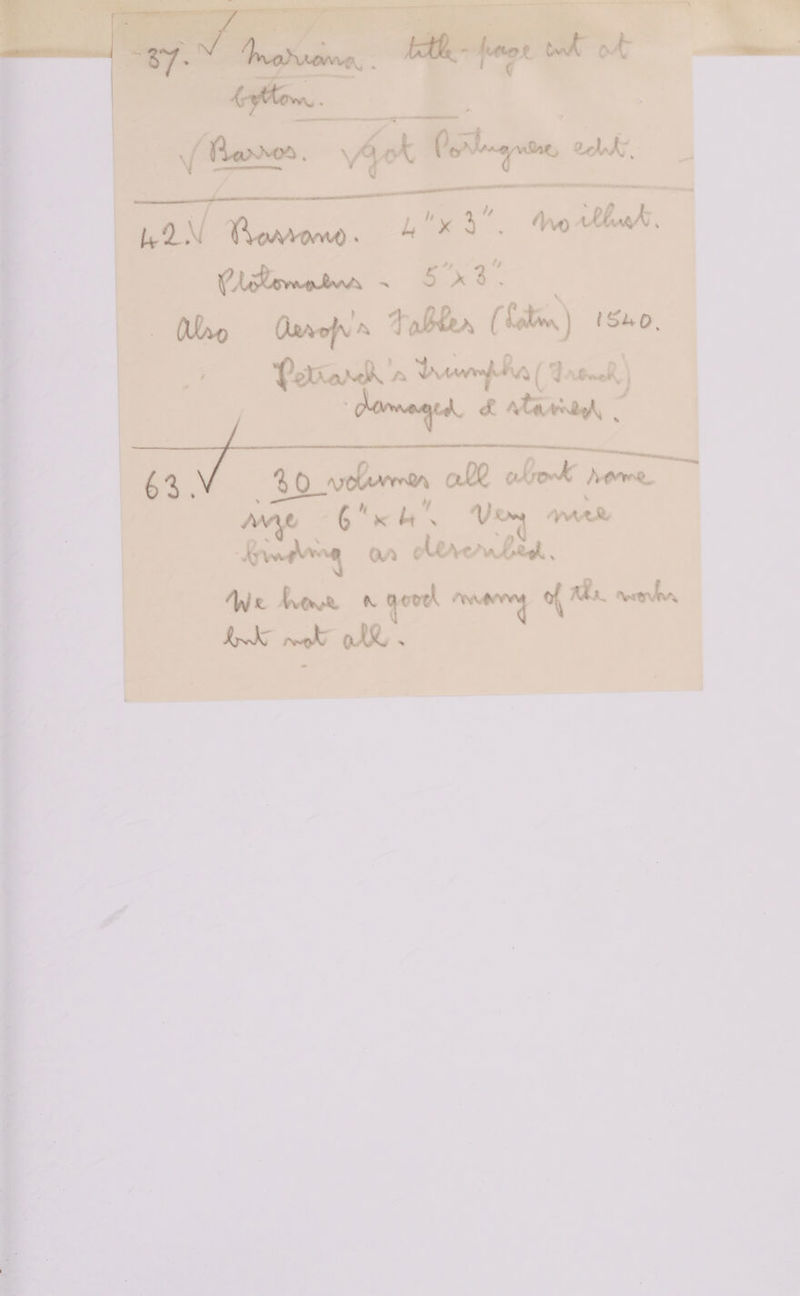 37. √ Mariana. title-page cut at
bottom.
√ Barros. √ Got Portuguese edit.
42. √ Bassano. 4" x 3". No illust.
Plolomaeus - 5" x 3".
Also Aesop's Fables (Latin) 1540.
Petrarch's Triumphs (French)
damaged & stained.
63. √ 30 volumes all about same
size 6" x 4". Very nice
binding as described.
We have a good many of the works
but not all.